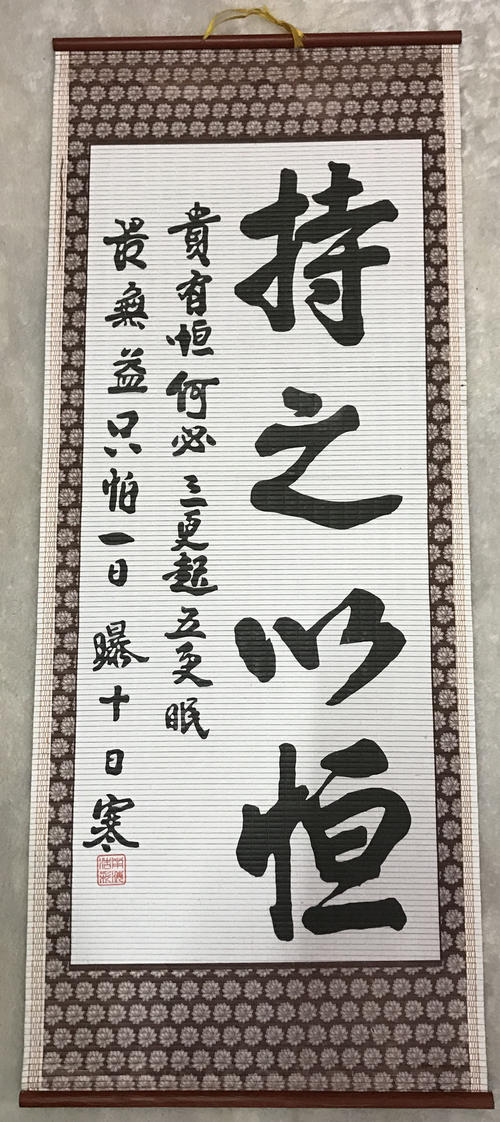 持之以恒
貴有恒何必三更起五更眠
最無益只怕一日曝十日寒